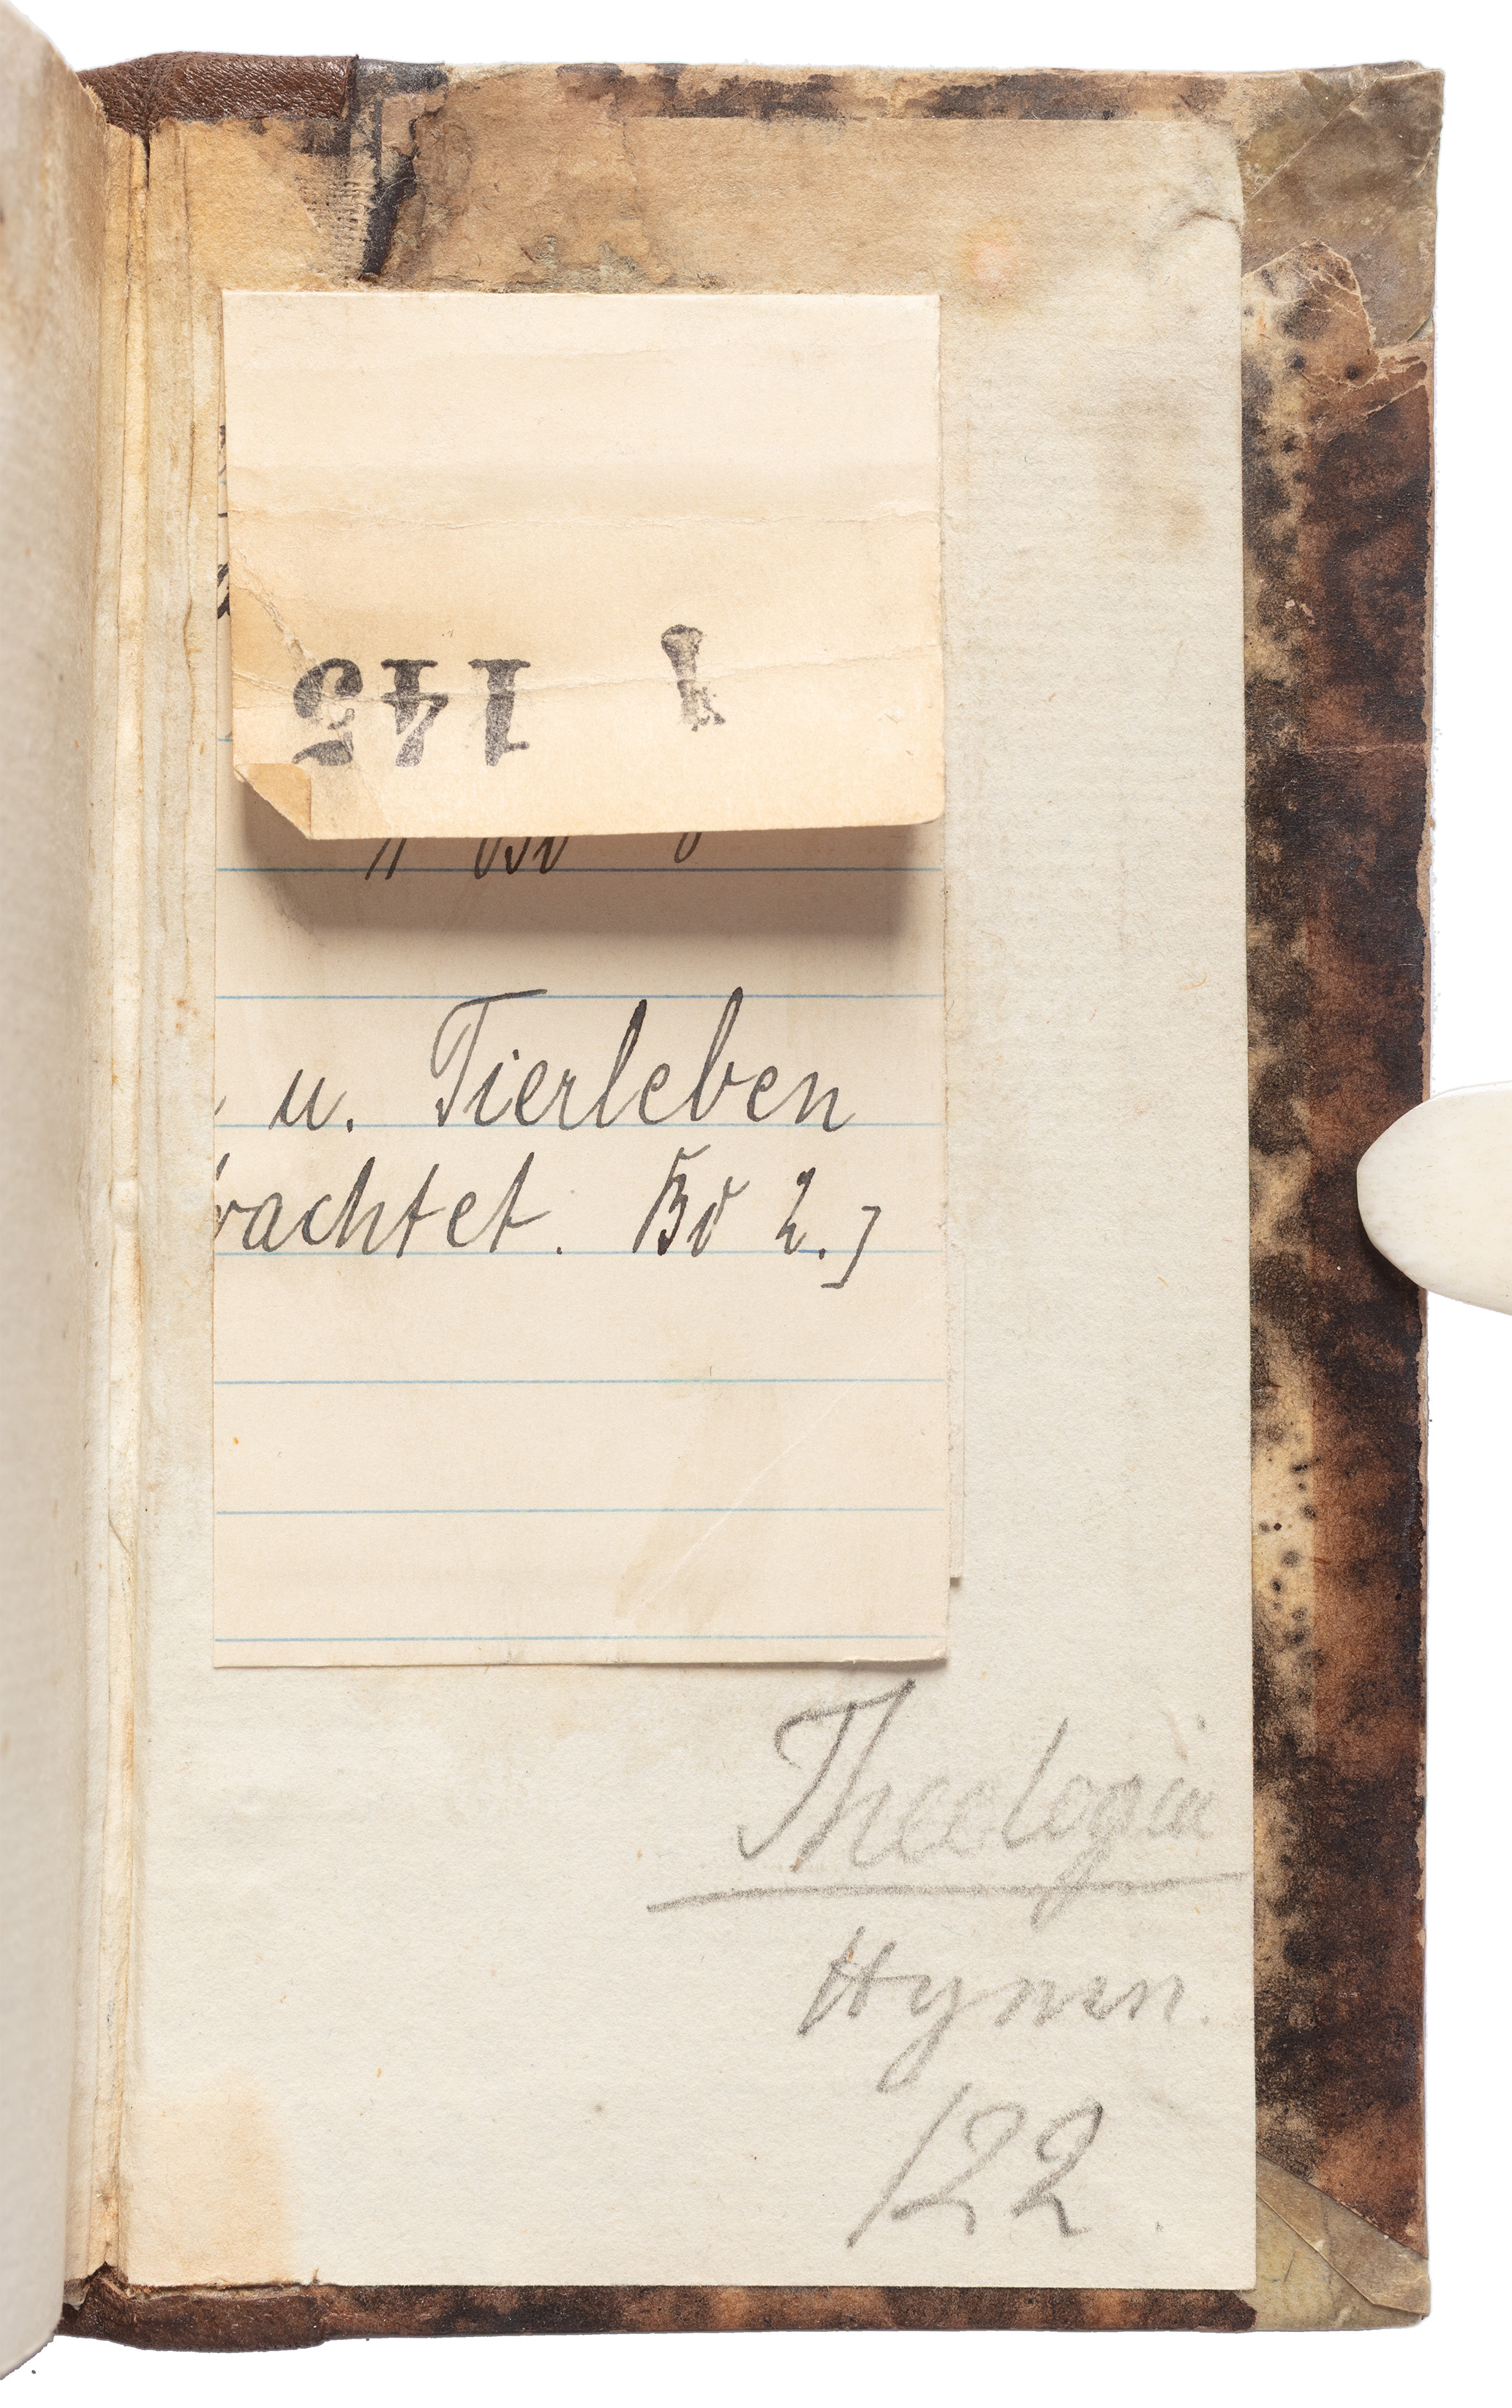 1 145
u. Tierleben
rachtet. Bd 2.]
Theologie
Hymn.
122.